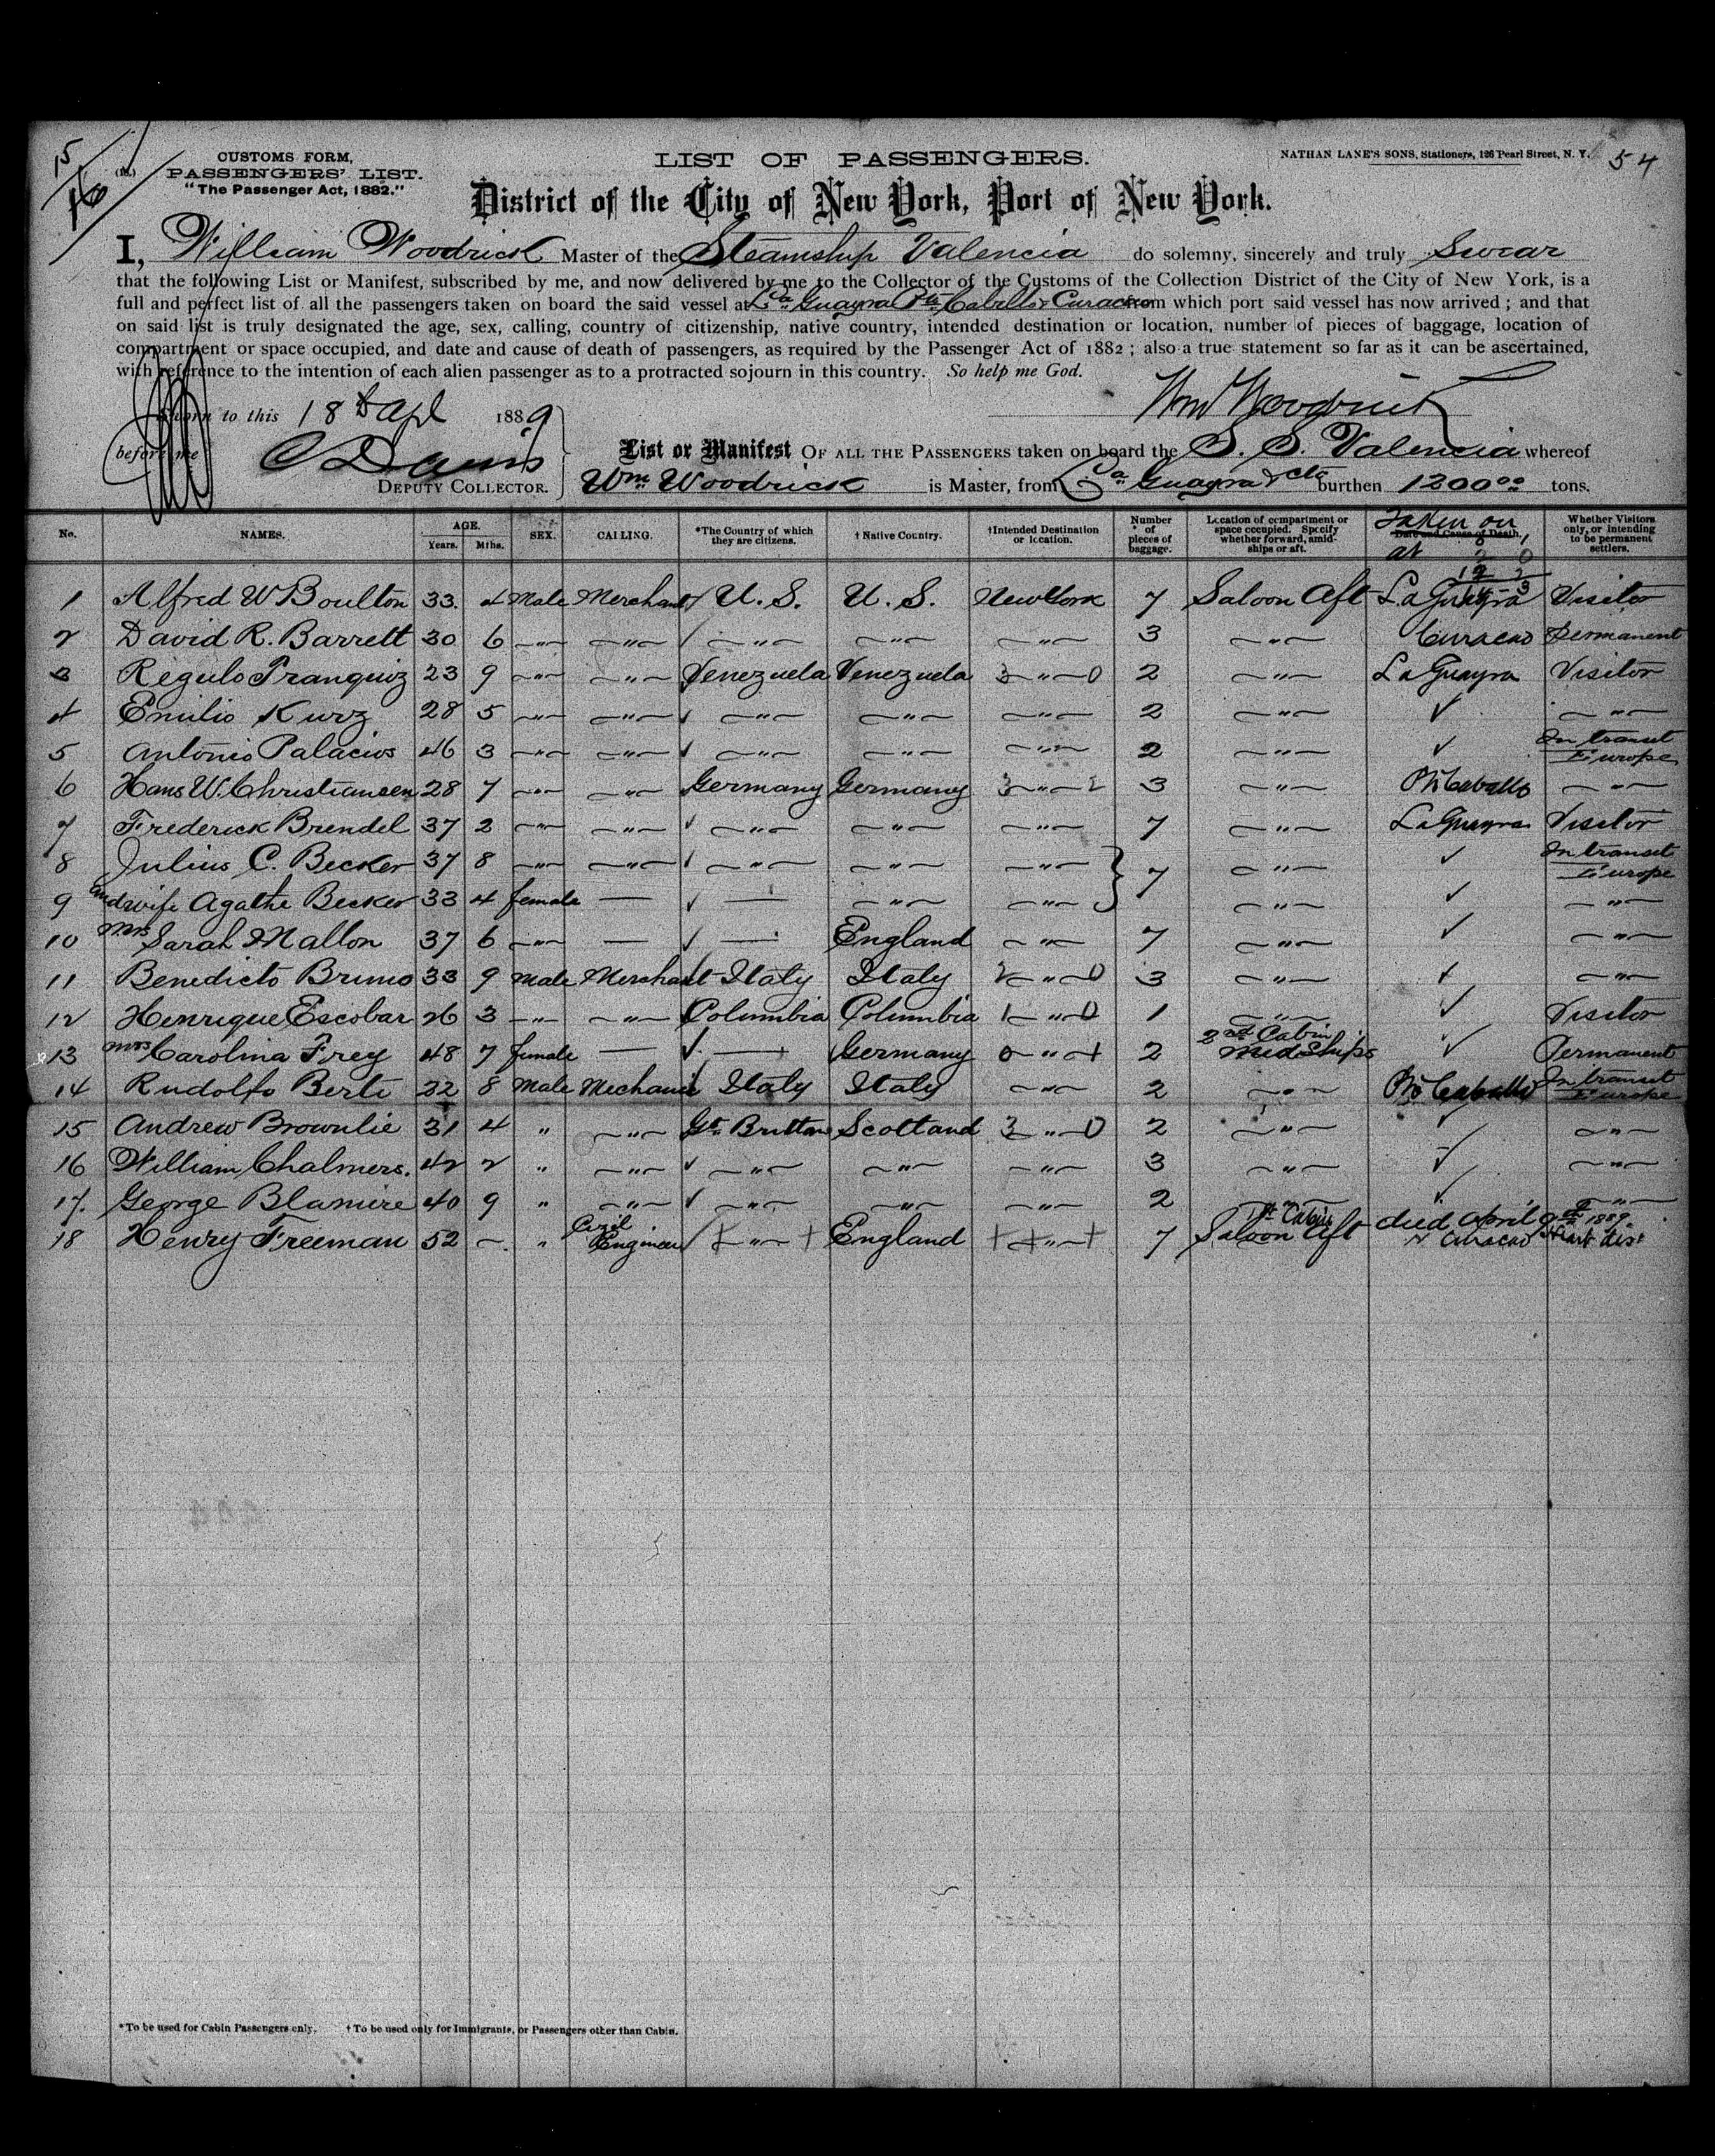 15
16
CUSTOMS FORM,
PASSENGERS' LIST.
"The Passenger Act, 1882."
LIST OF PASSENGERS.
NATHAN LANE'S SONS, Stationers, 126 Pearl Street, N. Y.
54
District of the City of New York, Port of New York.
I, William Woodrick Master of the Steamship Valencia do solemny, sincerely and truly Swear
that the following List or Manifest, subscribed by me, and now delivered by me to the Collector of the Customs of the Collection District of the City of New York, is a
full and perfect list of all the passengers taken on board the said vessel at La Guayra Pto Cabello & Curacao from which port said vessel has now arrived ; and that
on said list is truly designated the age, sex, calling, country of citizenship, native country, intended destination or location, number of pieces of baggage, location of
compartment or space occupied, and date and cause of death of passengers, as required by the Passenger Act of 1882 ; also a true statement so far as it can be ascertained,
with reference to the intention of each alien passenger as to a protracted sojourn in this country. So help me God.
Wm Woodrick
Sworn to this 18th Apl 1889
before me C Davis
DEPUTY COLLECTOR.
List or Manifest OF ALL THE PASSENGERS taken on board the S. S. Valencia whereof
Wm Woodrick is Master, from La Guayra & ctc burthen 1200 00 tons.
No. NAMES. AGE. Years. Mths. SEX. CALLING. *The Country of which they are citizens. † Native Country. †Intended Destination or location. Number of pieces of baggage. Location of compartment or space occupied. Specify whether forward, amidships or aft. Date and Cause of Death. Taken on at Whether Visitors only, or Intending to be permanent settlers.
1 Alfred W Boulton 33. 4 Male Merchant U. S. U. S. New York 7 Saloon Aft La Guayra Visitor
2 David R. Barrett 30 6 " " " " " 3 " Curacao Permanent
3 Regulo Franquiz 23 9 " " Venezuela Venezuela 3 " 0 2 " La Guayra Visitor
4 Emilio Kurz 28 5 " " ✓ " " " 2 " ✓ "
5 Antonio Palacios 46 3 " " ✓ " " " 2 " ✓ In transit Europe
6 Hans W. Christiansen 28 7 " " Germany Germany 3 " 2 3 " Pto Cabello "
7 Frederick Brendel 37 2 " " ✓ " " " 7 " La Guayra Visitor
8 Julius C. Becker 37 8 " " ✓ " " " 7 " ✓ In transit Europe
9 and wife Agathe Becker 33 4 female — ✓ — " " " ✓ "
10 Mrs Sarah Mallon 37 6 " — ✓ — England " 7 " ✓ "
11 Benedicto Bruno 33 9 male Merchant Italy Italy 2 " 0 3 " ✓ "
12 Henrique Escobar 26 3 " " Columbia Columbia 1 " 0 1 " ✓ Visitor
13 Mrs Carolina Frey 48 7 female — ✓ — Germany 0 " + 2 2nd Cabin Midships ✓ Permanent
14 Rudolfo Berti 32 8 Male Mechanic Italy Italy " 2 " Pto Cabello In transit Europe
15 Andrew Brownlie 31 4 " " Gt. Brittan Scotland 3 " 0 2 " ✓ "
16 William Chalmers. 42 2 " " ✓ " " " 3 " ✓ "
17. George Blamire 40 9 " " ✓ " " " 2 " ✓ "
18 Henry Freeman 52 — " Civil Engineer + " + England + + " + 7 1st Cabin Saloon Aft died April 9th 1889 Curacao Heart dis.
*To be used for Cabin Passengers only. †To be used only for Immigrants, or Passengers other than Cabin.